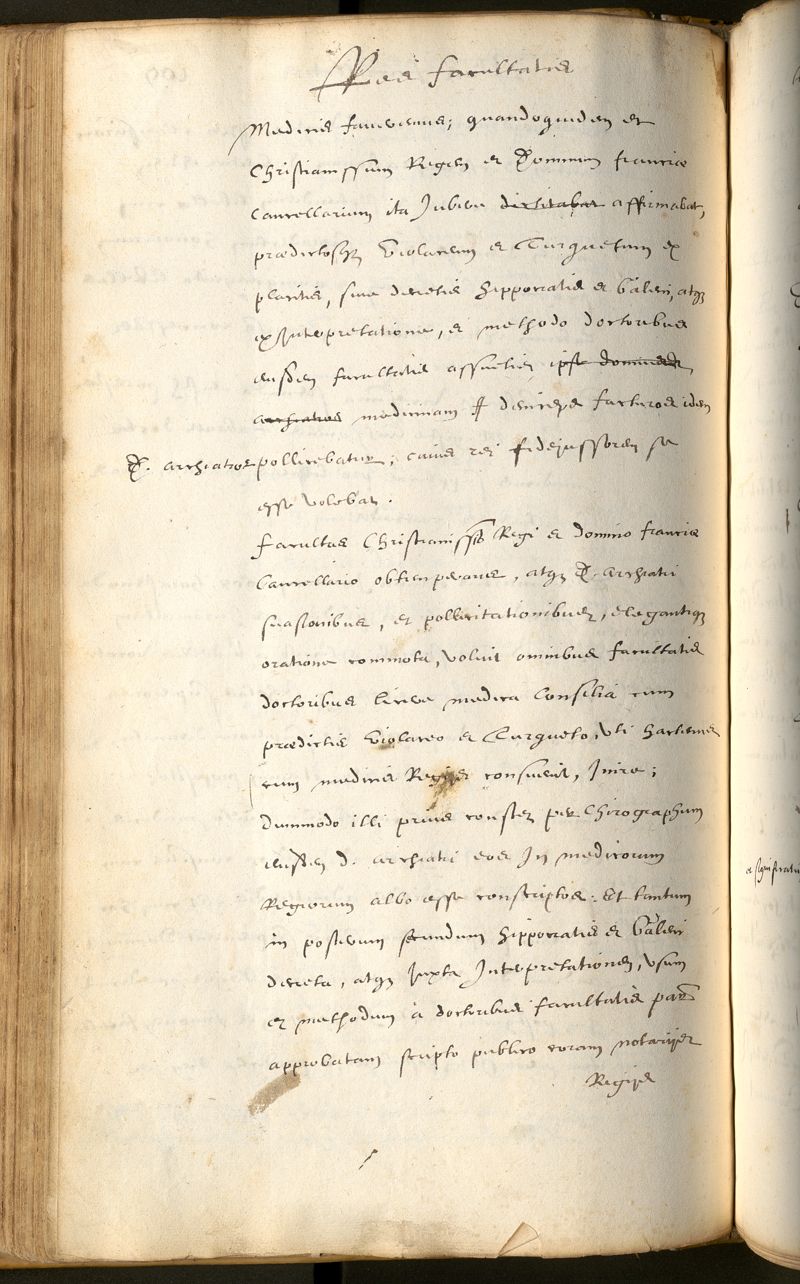 Res facultatis
Medicis faveremus; quandoquidem et
Christianissimum Regem et Dominum franciæ
Cancellarium ita Jubere dictitabat affirmabat,
prædictosq; Violareum et Turquetum ex
placitis, sive decretis Hippocratis et Galeni, atq;
ex Interpretatione, et methodo doctoribus
eiusdem facultatis assuetis ipse dominus
archiatros medicinam deinceps facturos idem
D. archiatros pollicebatur; cuius rei fidejussorem se
esse volebat.
Facultas Christianissº Regi et domino franciæ
Cancellario obtemperans, atq; D. archiatri
suasionibus, et pollicitationibus, elegantiq;
oratione commota, voluit omnibus facultatis
doctoribus licere medica Consilia cum
prædictis Violareo et Turqueto, vti hactenus
cum medicis Regijs consuevit, Inire;
dummodo illi prius constet per Chirographum
eiusdem d. archiatri eos In medicorum
Regiorum albo esse conscriptos: Et tantum
in posterum secundum Hippocratis et Galeni
decreta, atq; Juxta Interpretationem, vsum
et methodum à doctoribus facultatis paris
approbatam scripto publico coram notarijs
Regijs